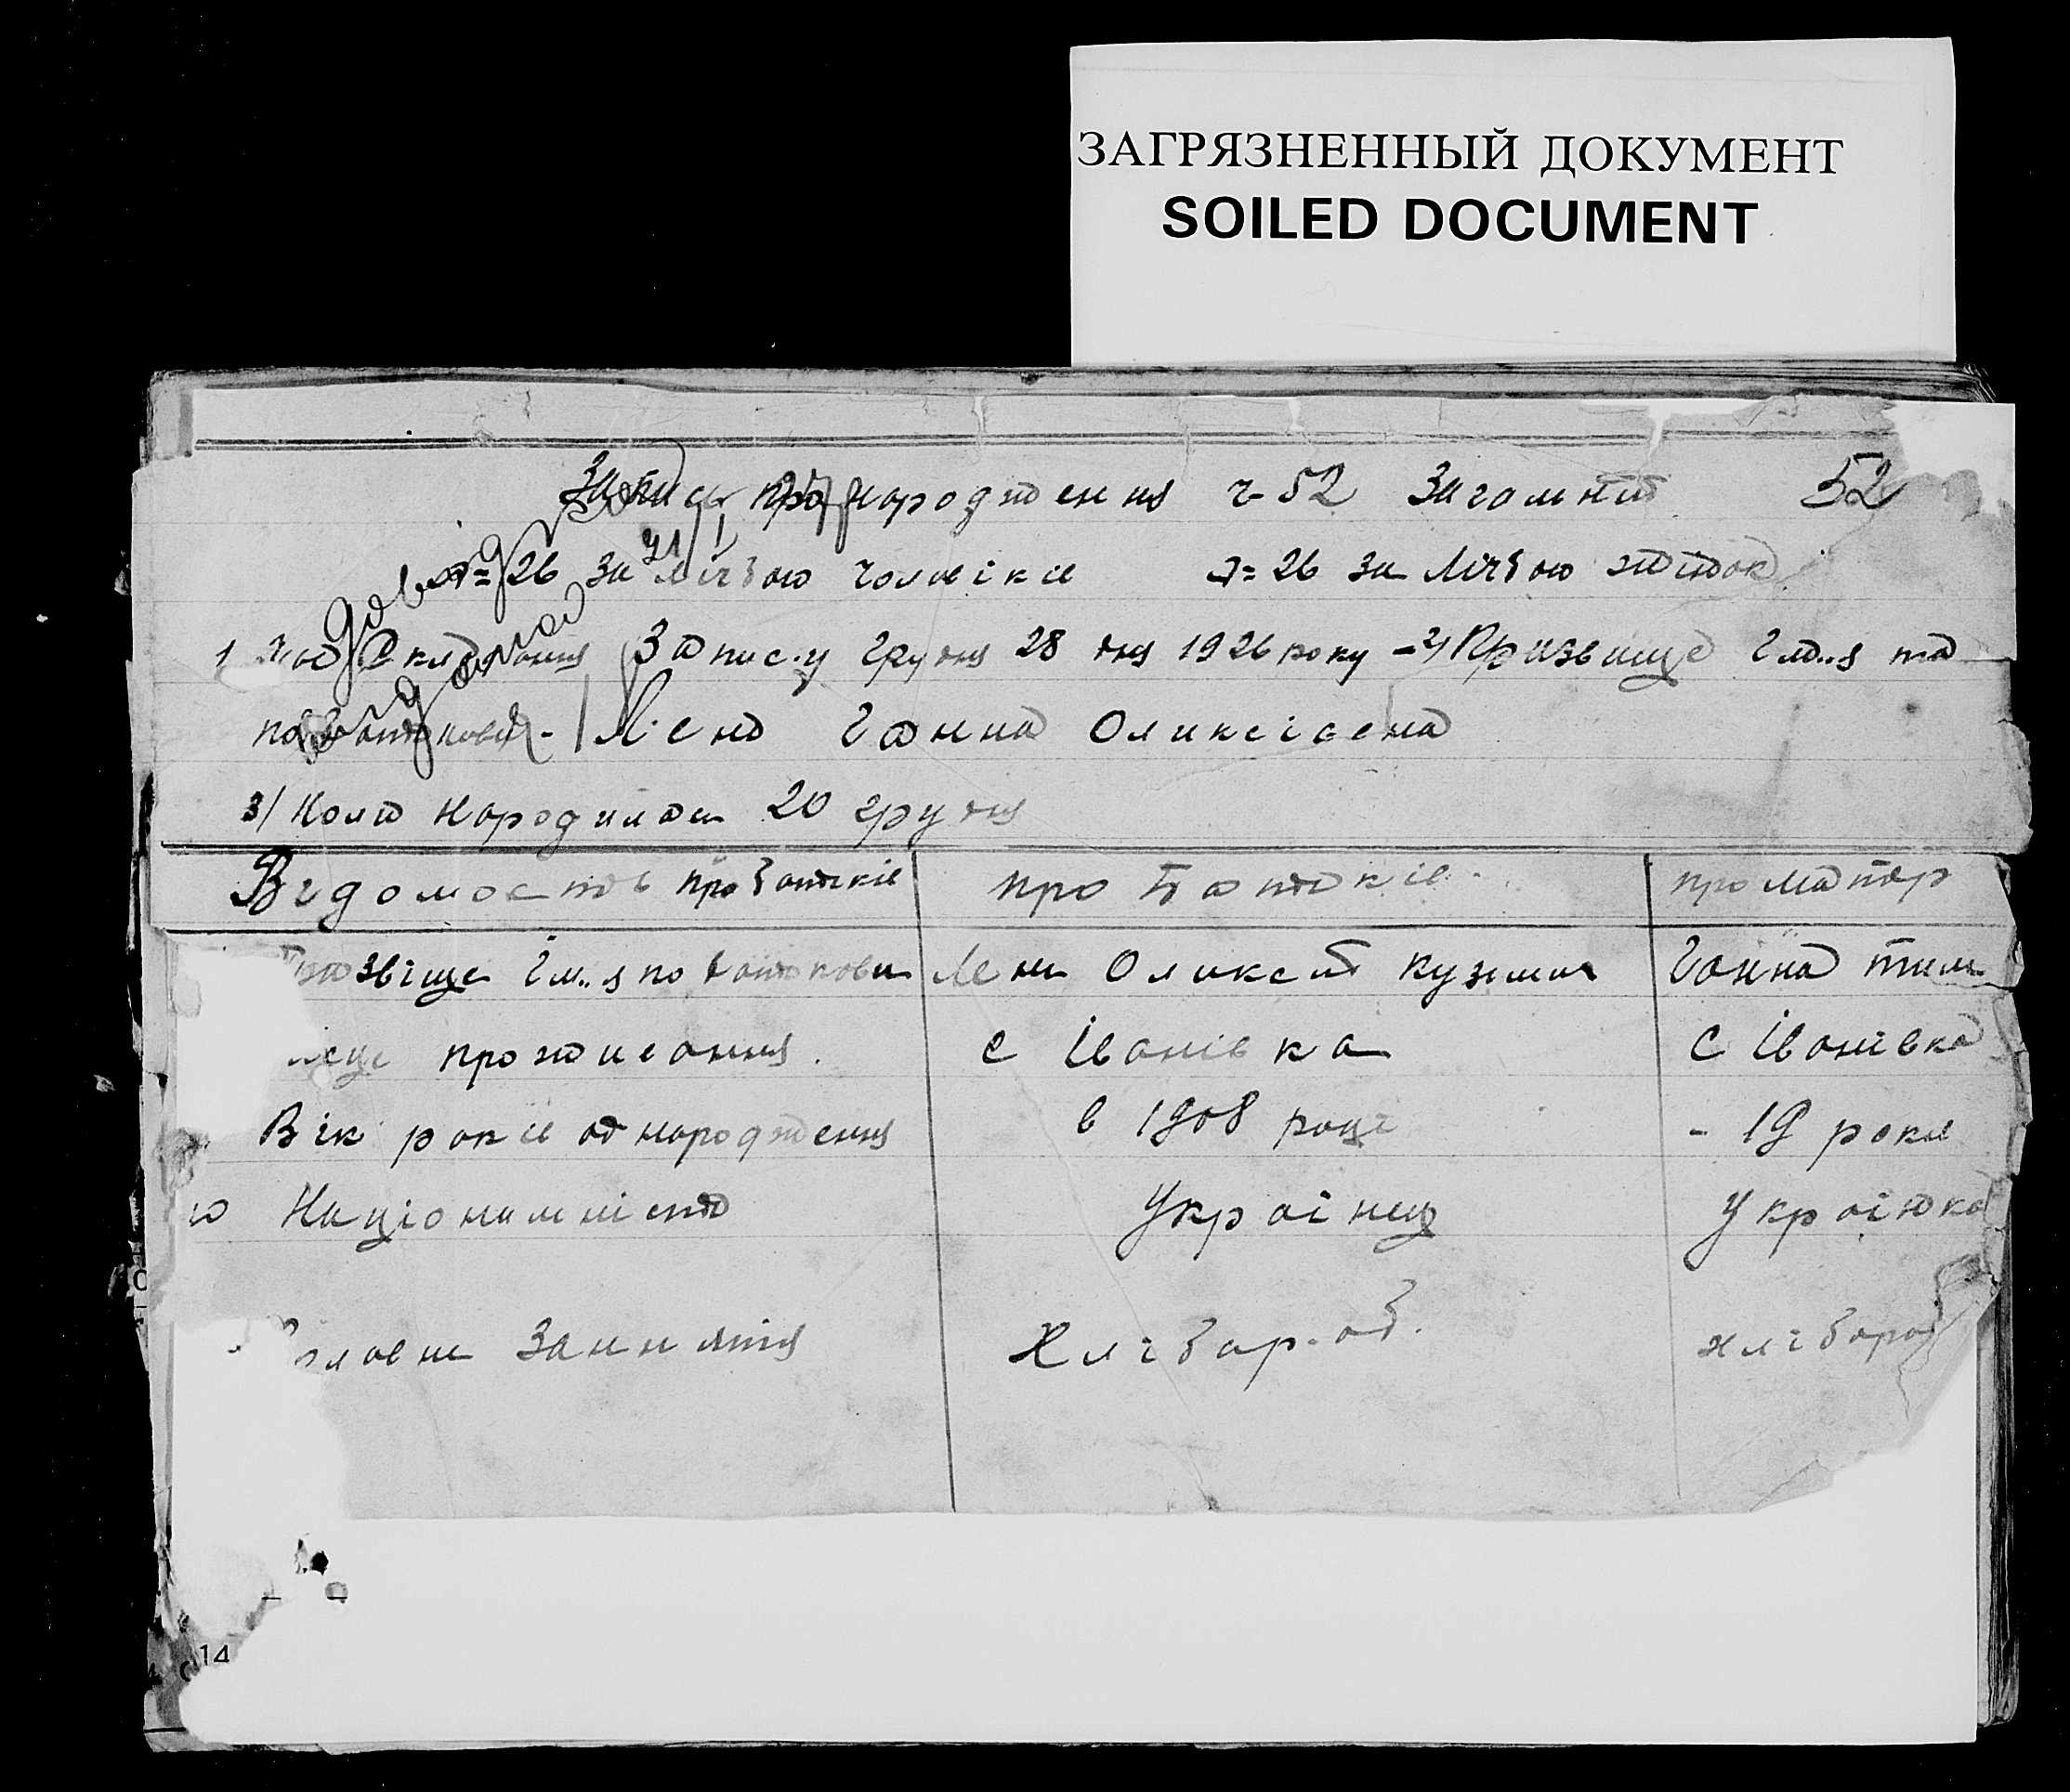 ЗАГРЯЗНЕННЫЙ ДОКУМЕНТ
SOILED DOCUMENT
Запис про народження ч 52 Загомній 52
26 за лічбою чоловіків 26 за лічбою жінок
1 Складання Запису Грудня 28 дня 1926 року - 2) Призвище Імя та
по батькові - Лень Ганна Оликсіевна
3/ Коли народилась 20 грудня
Відомость про батьків про Батьків про Матір
звіще Ім..я по батькови Лень Оликсій Кузьмич Ганна Тим
проживання. с Іванівка с Іванівка
Вік років од народження в 1908 році - 19 років
Національність Українець Українка
Заняття Хлібороб. хлібороб
14